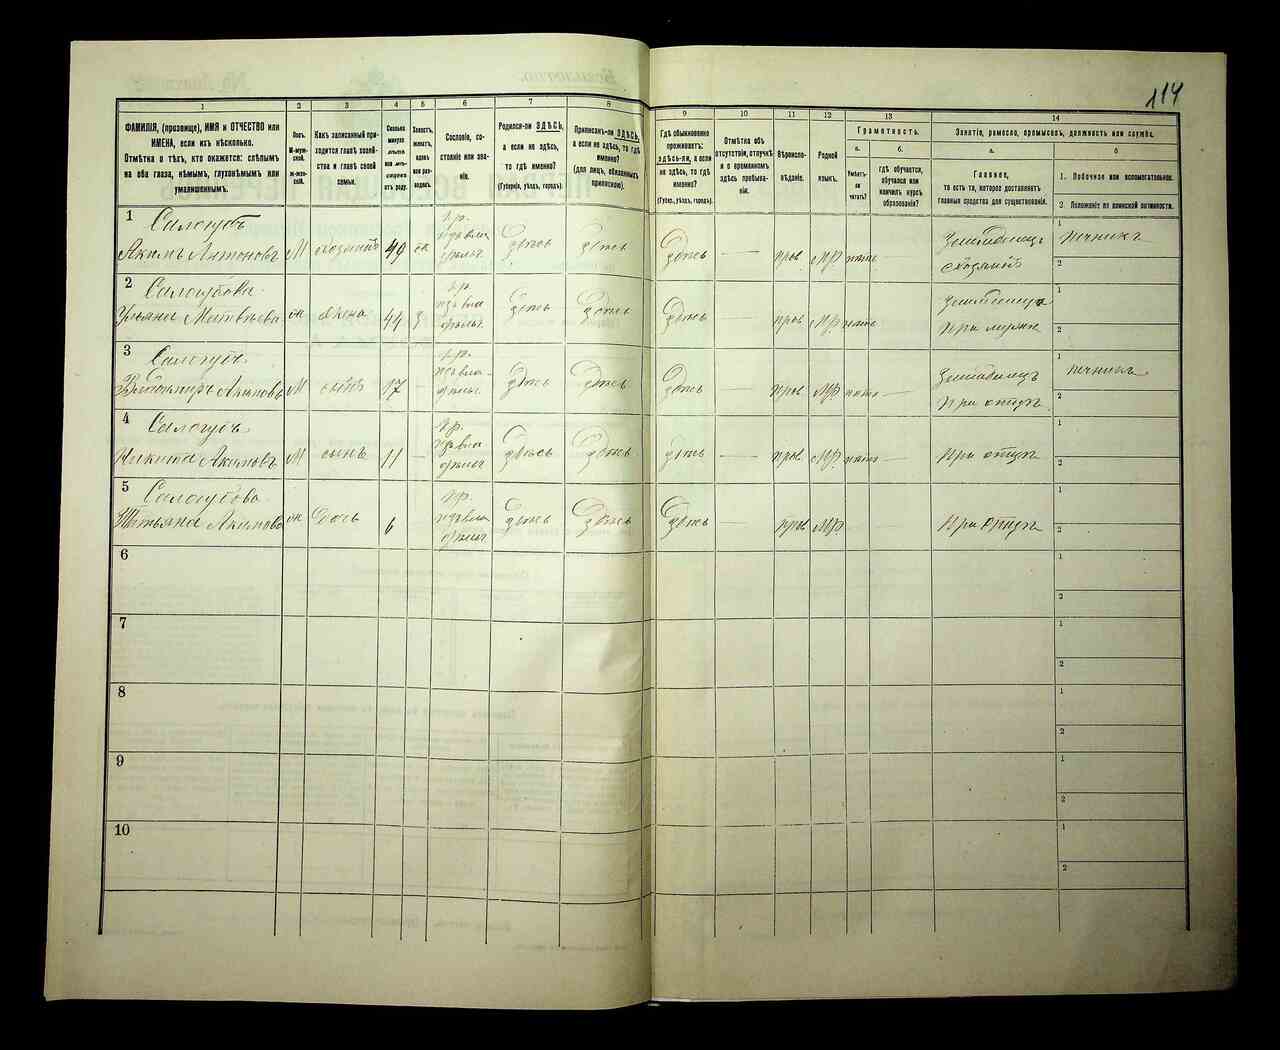 114
1 2 3 4 5 6 7 8 9 10 11 12 13 14
ФАМИЛІЯ, (прозвище), ИМЯ и ОТЧЕСТВО или
ИМЕНА, если ихъ нѣсколько.
Отмѣтка о тѣхъ, кто окажется: слѣпымъ
на оба глаза, нѣмымъ, глухонѣмымъ или
умалишеннымъ.
Полъ.
М-муж-
ской.
Ж-жен-
скій.
Какъ записанный при-
ходится главѣ хозяй-
ства и главѣ своей
семьи.
Сколько
минуло
лѣтъ
отъ роду.
Холостъ,
женатъ,
вдовъ
или раз-
веденъ.
Сословіе, со-
стояніе или зва-
ніе.
Родился-ли ЗДѢСЬ,
а если не здѣсь,
то гдѣ именно?
(Губернія, уѣздъ, городъ).
Приписанъ-ли ЗДѢСЬ,
а если не здѣсь, то гдѣ
именно?
(для лицъ, обязанныхъ
припискою).
Гдѣ обыкновенно
проживаетъ:
здѣсь-ли, а если
не здѣсь, то гдѣ
именно?
(Губер., уѣздъ, городъ).
Отмѣтка объ
отсутствіи, отлучкѣ
и о временномъ
здѣсь пребыва-
ніи.
Вѣроиспо-
вѣданіе.
Родной
языкъ.
Грамотность.
а. б.
Умѣетъ-
ли
читать?
гдѣ обучается,
обучался или
кончилъ курсъ
образованія?
Занятіе, ремесло, промыселъ, должность или служба.
а. б
Главное,
то есть то, которое доставляетъ
главныя средства для существованія.
1. Побочное или вспомогательное.
2. Положеніе по воинской повинности.
1 Сологубъ пр. 1
Акимъ Антоновъ М хозяинъ 49 здѣсь здѣсь здѣсь — прав. МР — хозяинъ печникъ 2
2 Сологубова пр. 1
Ульяна Матвѣева ж жена 44 здѣсь здѣсь здѣсь — прав МР — при мужѣ 2
3 Сологубъ пр. 1
Владимиръ Акимовъ М сынъ 17 — здѣсь здѣсь здѣсь — прав МР — при отцѣ печникъ 2
4 Сологубъ пр. 1
Никита Акимовъ М сынъ 11 — здѣсь здѣсь здѣсь — прав. МР — при отцѣ 2
5 Сологубова пр. 1
Татьяна Акимова ж дочь 6 здѣсь здѣсь здѣсь — прав МР. при отцѣ 2
6 1
2
7 1
2
8 1
2
9 1
2
10 1
2